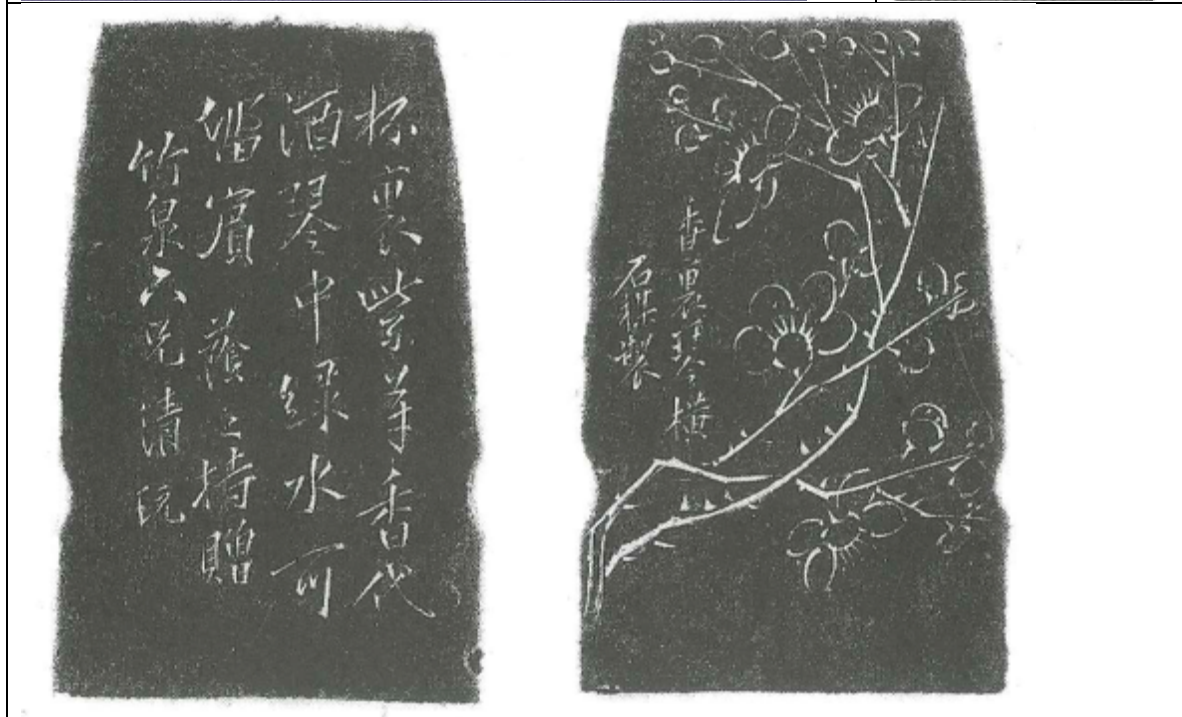 杯裏紫芽香代
酒琴中綠水可
留賓 蔭持贈
竹泉六兄清玩
香裏琴橫
石楳製